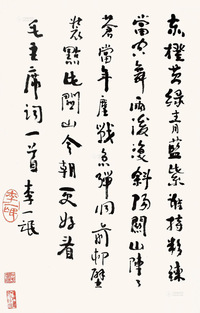 赤橙黄绿青蓝紫谁持彩练
当空舞雨后复斜阳关山阵々
苍当年鏖战急弹洞前邨壁
装点此关山今朝更好看
毛主席词一首 李一氓